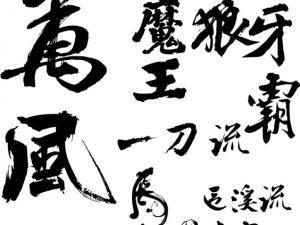 萬風
魔王
狼牙
霸
一刀流
馬
巨溪流